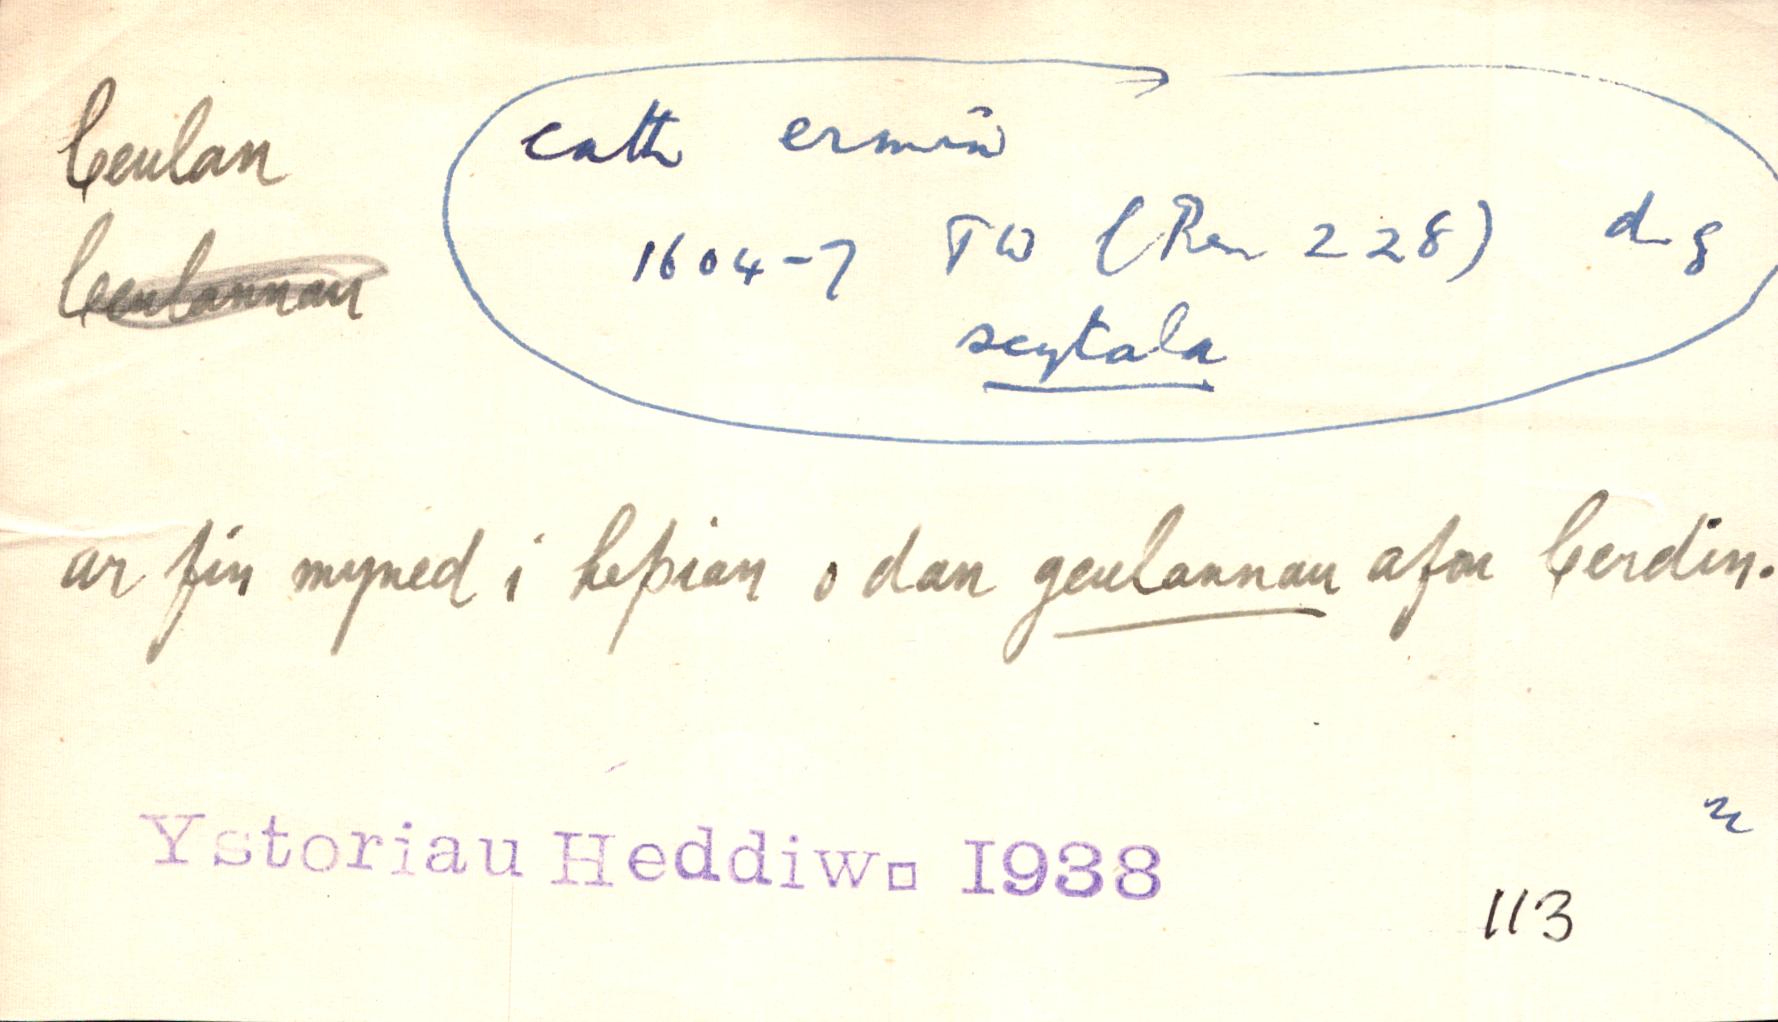 Ceulan
cath ermin
Ceulannau
1604-7 TW (Pen 228) d.g
scytala
ar fin myned i hepian o dan geulannau afon Cerdin.
Ystoriau Heddiw. 1938
113